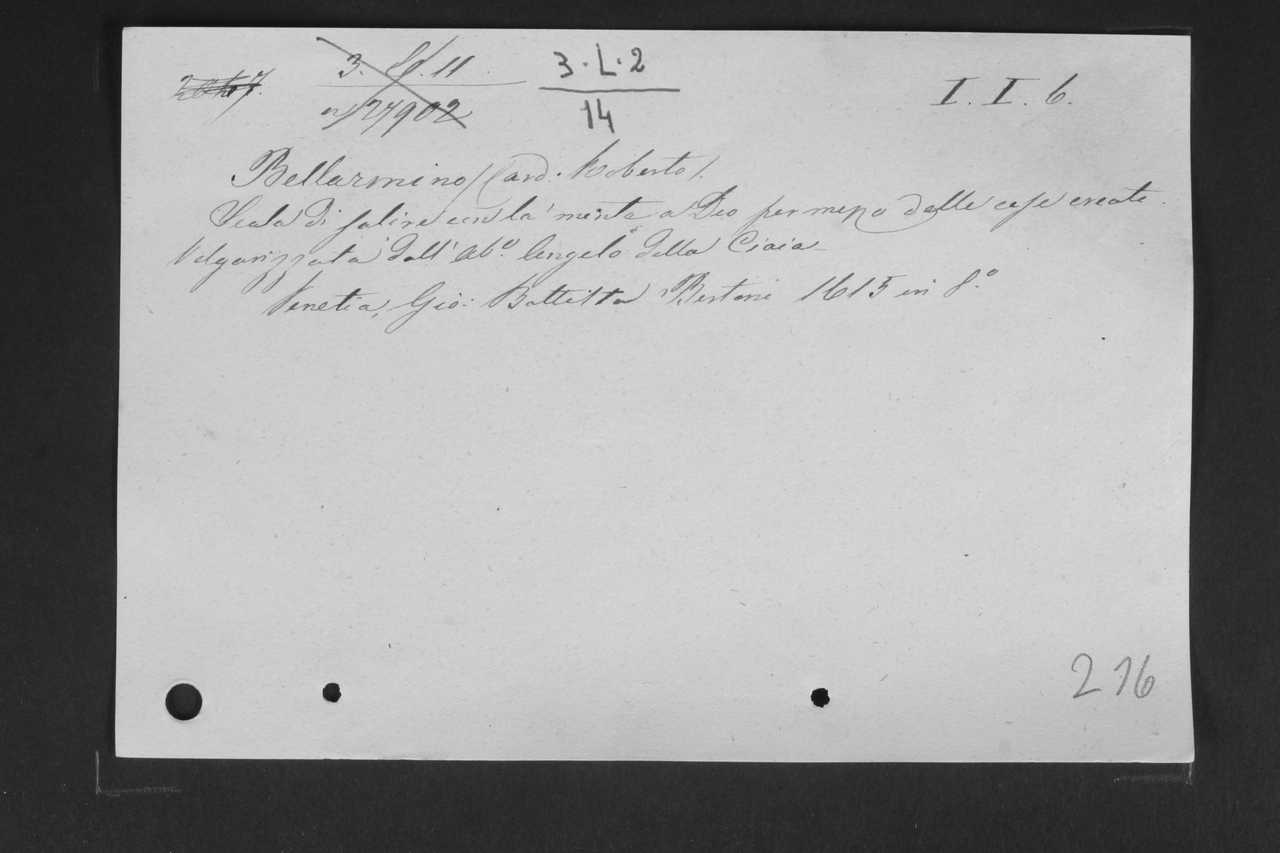 3. L. 2
14
I. I. 6.
Bellarmino (Card. Roberto).
Scala di salire con la mente a Dio per mezo delle cose create.
Volgarizzata dall' Ab.º Angelo della Ciaia
Venetia, Gio: Battista Bertoni 1615 in 8.º
216